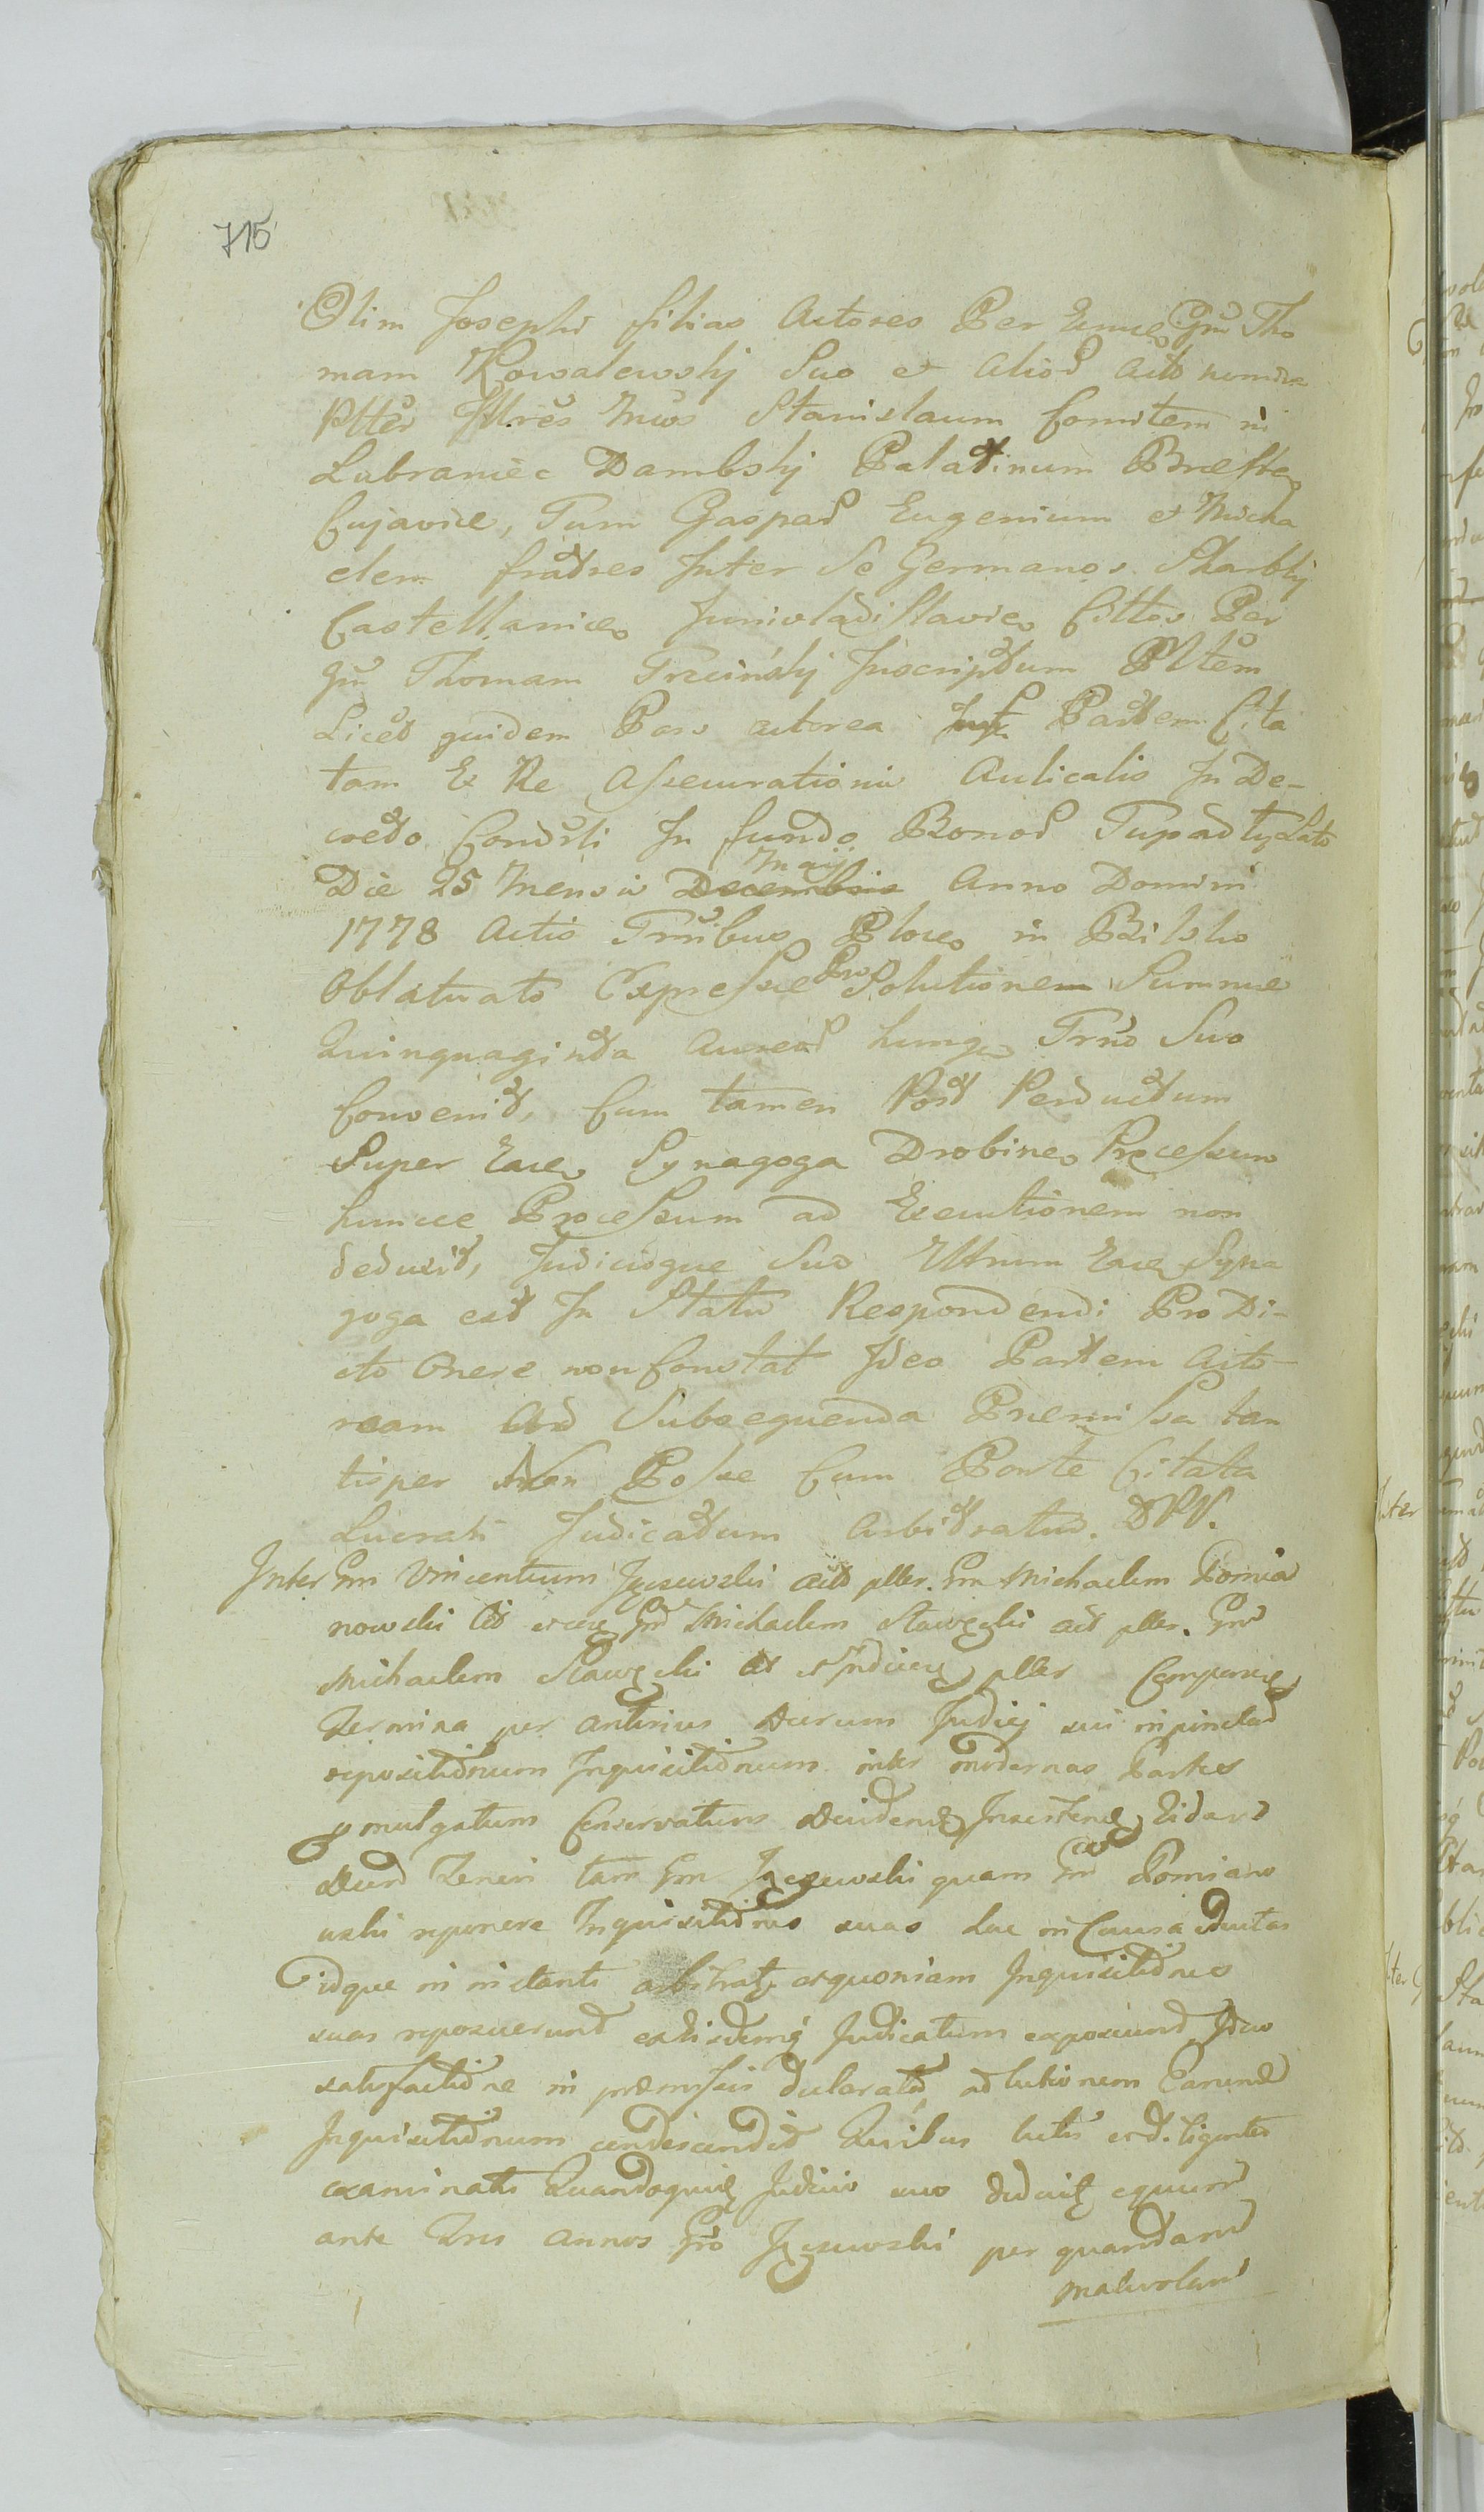 715
Olim Josephi filias Actores Per Eumce Gnu Tho
mam Kowalewskj Suo et aliod actô nomine
Plltêr Jllres Mcos Stanislaum Comitem in
Lubraniec Dambskj Palatinum Bresten
Cujaviæ, Tum Gaspad Eugenium et Micha
elem fratres Inter Se Germanos Skarbkj
Castellanice Junivladislavie Cittos Per
Gm Thomam Trzcinskj Inscriptum Plltem
Licet quidem Pars actorea Partem Cita
tam Ex Re Assecurationis Aulicalis In De-
creto Condsli In fundo Bonod Tupadly Lato
Die 25 Mensis Decembris Maij Anno Domini
1778 Actis Trmibus Ploce in Bilsko
Oblatuato Expresse Pro Solutione Summæ
Quinquaginta Aureod hung Trno Suo
Convenit, Cum tamen Post Perductum
Super Eace Synagoga Drobine Processum
huncce Processum ad Executionem non
deduxit, Judicioque Suo Utrum Eace Syna
goga est In Statu Respondendi Pro Di-
cto Onere non Constat Ideo Partem Acto-
ream Ad Subsequenda Præmissa tan
tisper Non Posse Cum Parte Citata
Lucrati Judicatum arbitratur. DPN.
Inter Gm Vincentium Jezewski actô pltêr. Gm Michaelem Pomia
nowski Cit et Gm Michaelem Stawęcki act pltêr. Gm
Michaelem Stawęcki et pltêr Comparuę
Termina per anterius Decrum Judicij sui in
repositionum Inquisitionum inter modernas Partes
pmulgatum Conservatum Insistend Eidard
Decrd Teneri tam Gm Jezewski quam Gm Pomiano
wski reponere Inquisitiones suas hac in Causa eductas
idque in instanti arbitratę et quoniam Inquisitiones
suas reposuerund Judicatum exposcund Ideo
satisfactione in præmissis declaratd ad lectionem Earund
Inquisitionum condescendid Quibus lectis et diligenter
examinatis Quandoquidę Judicio suo deducitę equum
ante Tres annos Gno Jezewski per quandam
malevolam